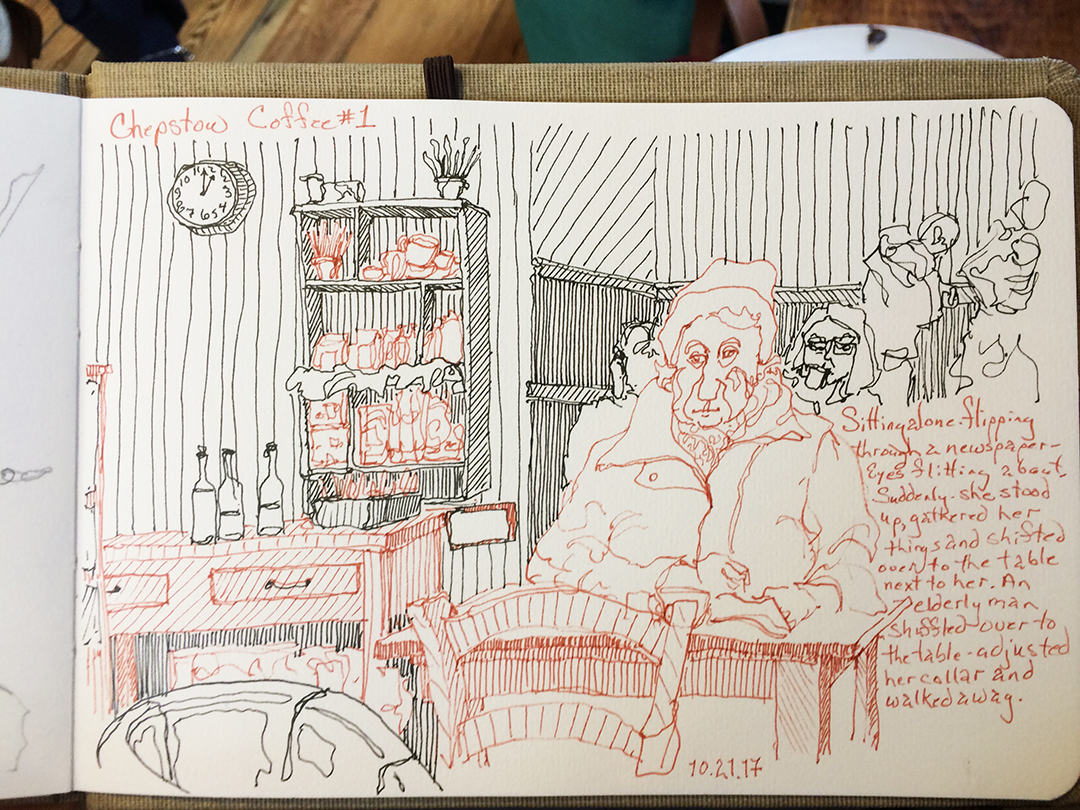 Chepstow Coffee #1
11 12 1
10 2
9 3
8 4
7 6 5
Sitting alone-flipping
through a newspaper-
Eyes flitting about.
Suddenly-she stood
up, gathered her
things and shifted
over to the table
next to her. An
elderly man
shuffled over to
the table-adjusted
her collar and
walked away.
10.21.17